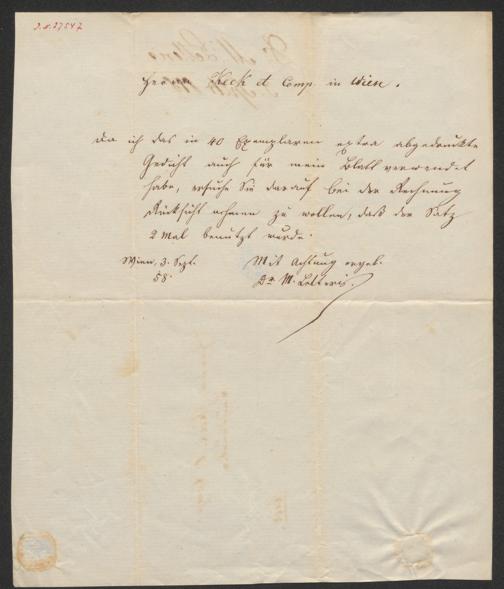 J.N. 27547
Herrn Keck et Comp. in Wien.
Da ich das in 40 Exemplaren extra abgedruckte
Gedicht auch für mein Blatt verwendet
habe, ersuche Sie darauf bei der Rechnung
Rücksicht nehmen zu wollen, daß der Satz
2 Mal benützt wurde.
Wien, 3. Sept.
58.
Mit Achtung ergeb.
Dr M. Letteris.